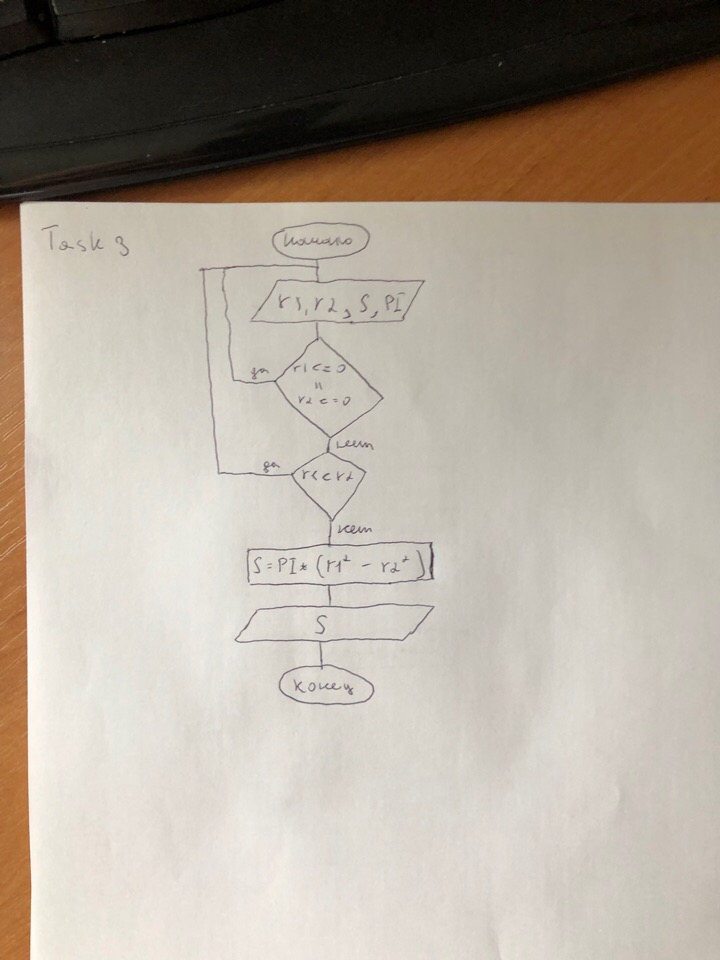 Task 3
Начало
r1, r2, S, PI
да
r1<=0
||
r2<=0
нет
да
r1<r2
нет
S=PI*(r1² - r2²)
S
конец